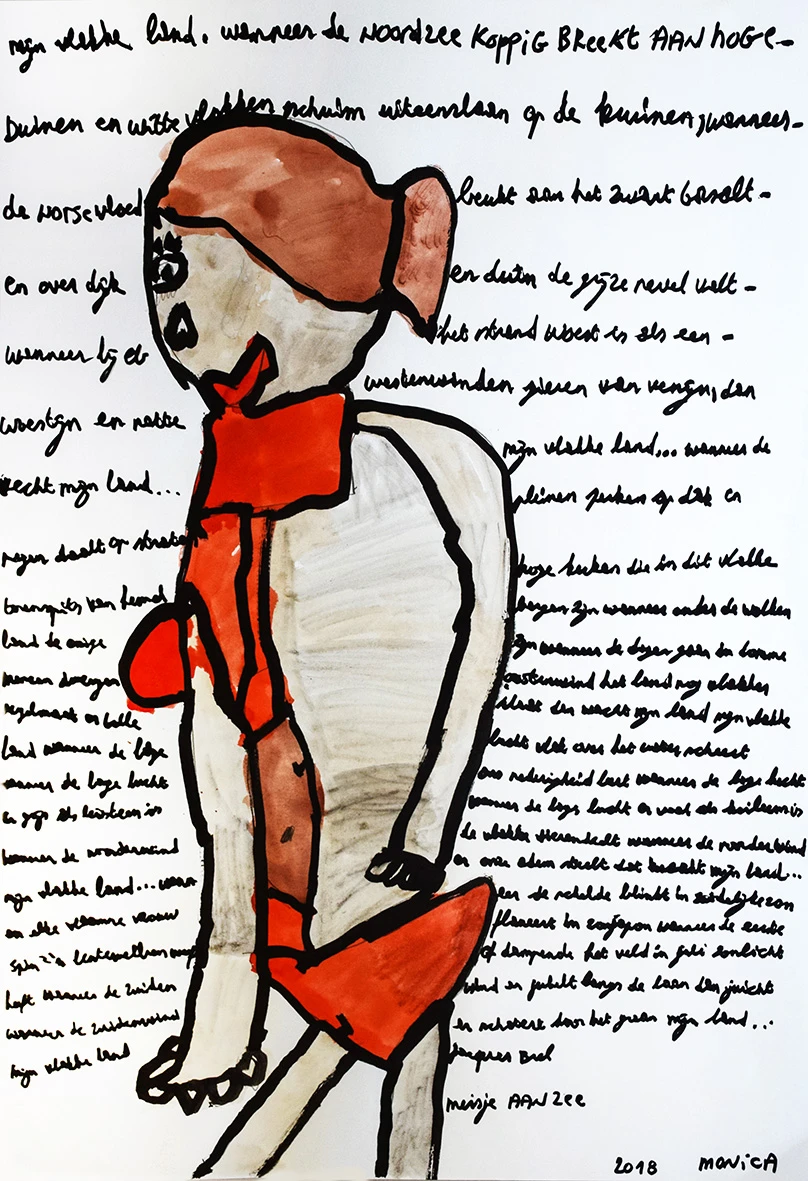 mijn vlakke land, wanneer de NOORDZEE KOPPIG BREEKT AAN hoge-
Duinen en witte vlokken schuim uiteenslaan op de kruinen, wanneer-
de norse vloed beukt aan het zwart basalt -
en over dijk en duin de grijze nevel valt -
wanneer bij eb het strand woest is als een -
woestijn en natte westenwinden gieren van venijn, dan
vecht mijn land... mijn vlakke land... wanneer de
regen daalt op straten pleinen perken op dak en
torenspits van hemel hoge kerken die in dit vlakke
land de enige bergen zijn wanneer onder de wolken
mensen dwergen zijn wanneer de dagen gaan in domme
regelmaat en bolle oostenwind het land nog vlakker
land wanneer de lage slaat dan wacht mijn land mijn vlakke
wanneer de lage lucht lucht vlak over het water scheert
en grijs als leisteen is ons nederigheid leert wanneer de lage lucht
wanneer de noordenwind wanneer de lage lucht er vaal als keileem is
mijn vlakke land... wan de vlakte vierendeelt wanneer de noordenwind
en elke vlaamse vrouw er onze adem steelt dat kraakt mijn land...
spin z'n lentewebben weeft en de schelde blinkt in zuidelijke zon
heft wanneer de zuiden flaneert in zonjapon wanneer de eerste
wanneer de zuidenwind of dampende het veld in juli zonlicht
mijn vlakke land wind er jubelt langs de laan dan juicht
en schatert door het graan mijn land...
Jacques Brel
meisje AAN Zee
2018 MONiCA